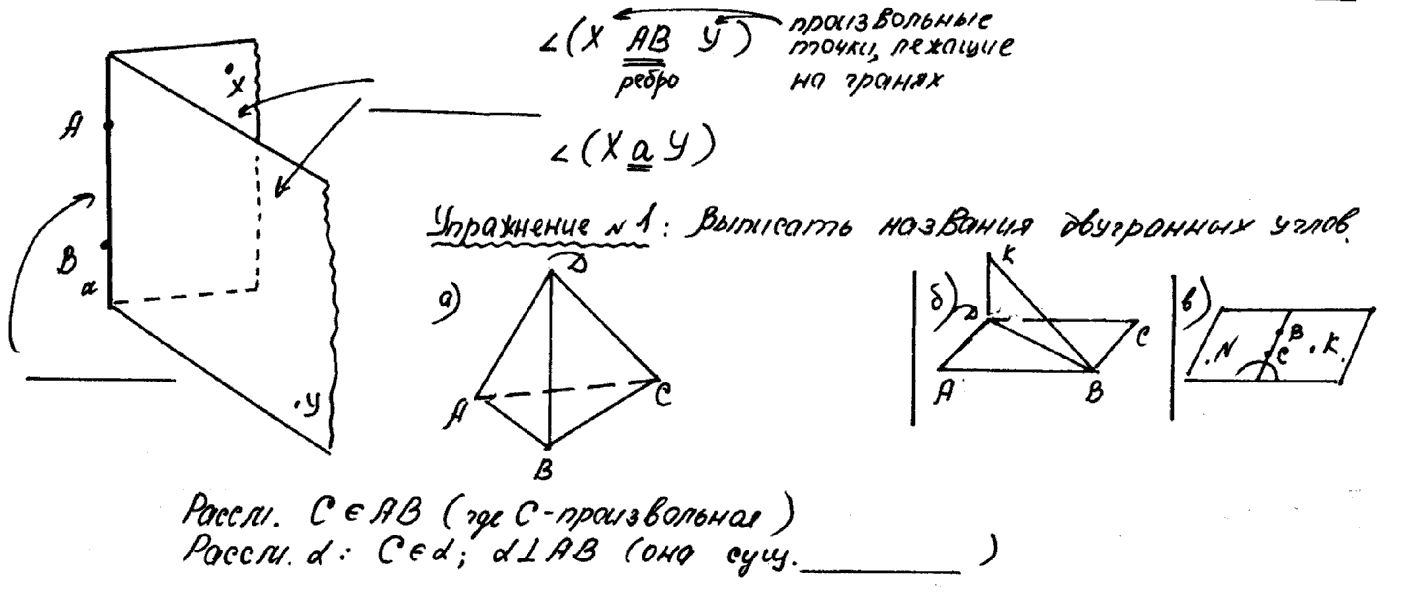 ∠(X AB Y)
ребро
произвольные
точки, лежащие
на гранях
X
A
∠(X a Y)
B
a
Y
Упражнение №1: Выписать названия двугранных углов.
а)
D
A
C
B
б)
K
D
C
A
B
в)
N
B
C
K
Рассм. C ∈ AB (где C - произвольная)
Рассм. α: C ∈ α; α ⊥ AB (она сущ. ________ )